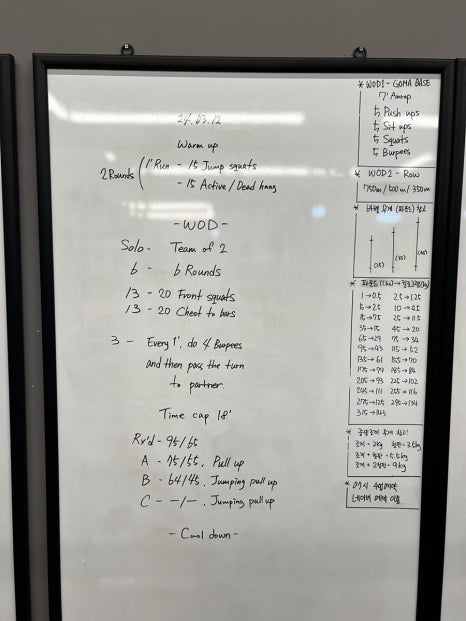 24.03.12
Warm up
2 Rounds ( 1' Run - 15 Jump squats
- 15 Active / Dead hang
- WOD -
Solo - Team of 2
6 - 6 Rounds
13 - 20 Front squats
13 - 20 Chest to bars
3 - Every 1', do 4 Burpees
and then pass the turn
to partner.
Time cap 18'
Rx'd - 95/65
A - 75/55, Pull up
B - 64/45, Jumping pull up
C - -/-, Jumping pull up
- Cool down -
* WOD1 - GOMA BASE
7' Amrap
5 Push ups
5 Sit ups
5 Squats
5 Burpees
* WOD2 - Row
750m / 500m / 350m
* 바벨 무게 (파운드) 참고
(25) (35) (45)
* 파운드(Lbs) → 킬로그램(kg)
1→0.5 2.5→1.25
5→2.5 10→4.5
15→7.5 25→11.5
35→15 45→20
65→29 75→34
95→43 115→52
135→61 155→70
175→79 185→84
205→93 225→102
245→111 255→116
275→125 295→134
315→143
* 중량조끼 무게 참고!
조끼 = 2kg 철판 = 3.5kg
조끼 + 철판 = 5.5kg
조끼 + 2철판 = 9kg
* 07시 수업예약
네이버 예약 이용